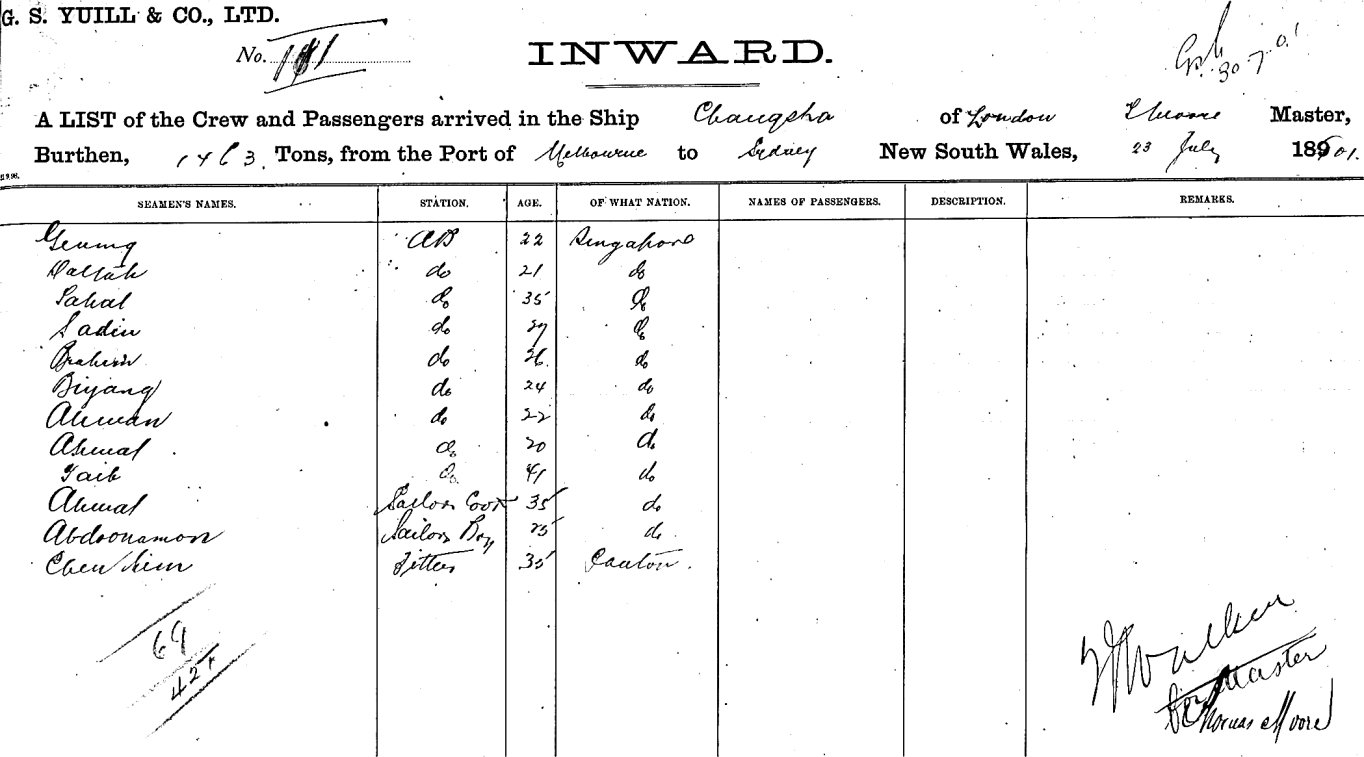 G. S. YUILL & CO., LTD.
No. 181
INWARD.
30.7.01
A LIST of the Crew and Passengers arrived in the Ship Changsha of London T Moore Master,
Burthen, 1463 Tons, from the Port of Melbourne to Sydney New South Wales, 23 July 1901.
SEAMEN'S NAMES. STATION. AGE. OF WHAT NATION. NAMES OF PASSENGERS. DESCRIPTION. REMARKS.
AB 22 Singapore
do 21 do
Sahal do 35 do
Sadin do 27 do
Brahim do 26 do
Biyang do 24 do
Ahman do 22 do
Ahmat do 20 do
Taib do 41 do
Ahmat Sailors Cook 35 do
Abdoonamon Sailors Boy 25 do
Chen Kim Fitter 35 Canton.
69
421
Walker
for Master
Thomas Moore